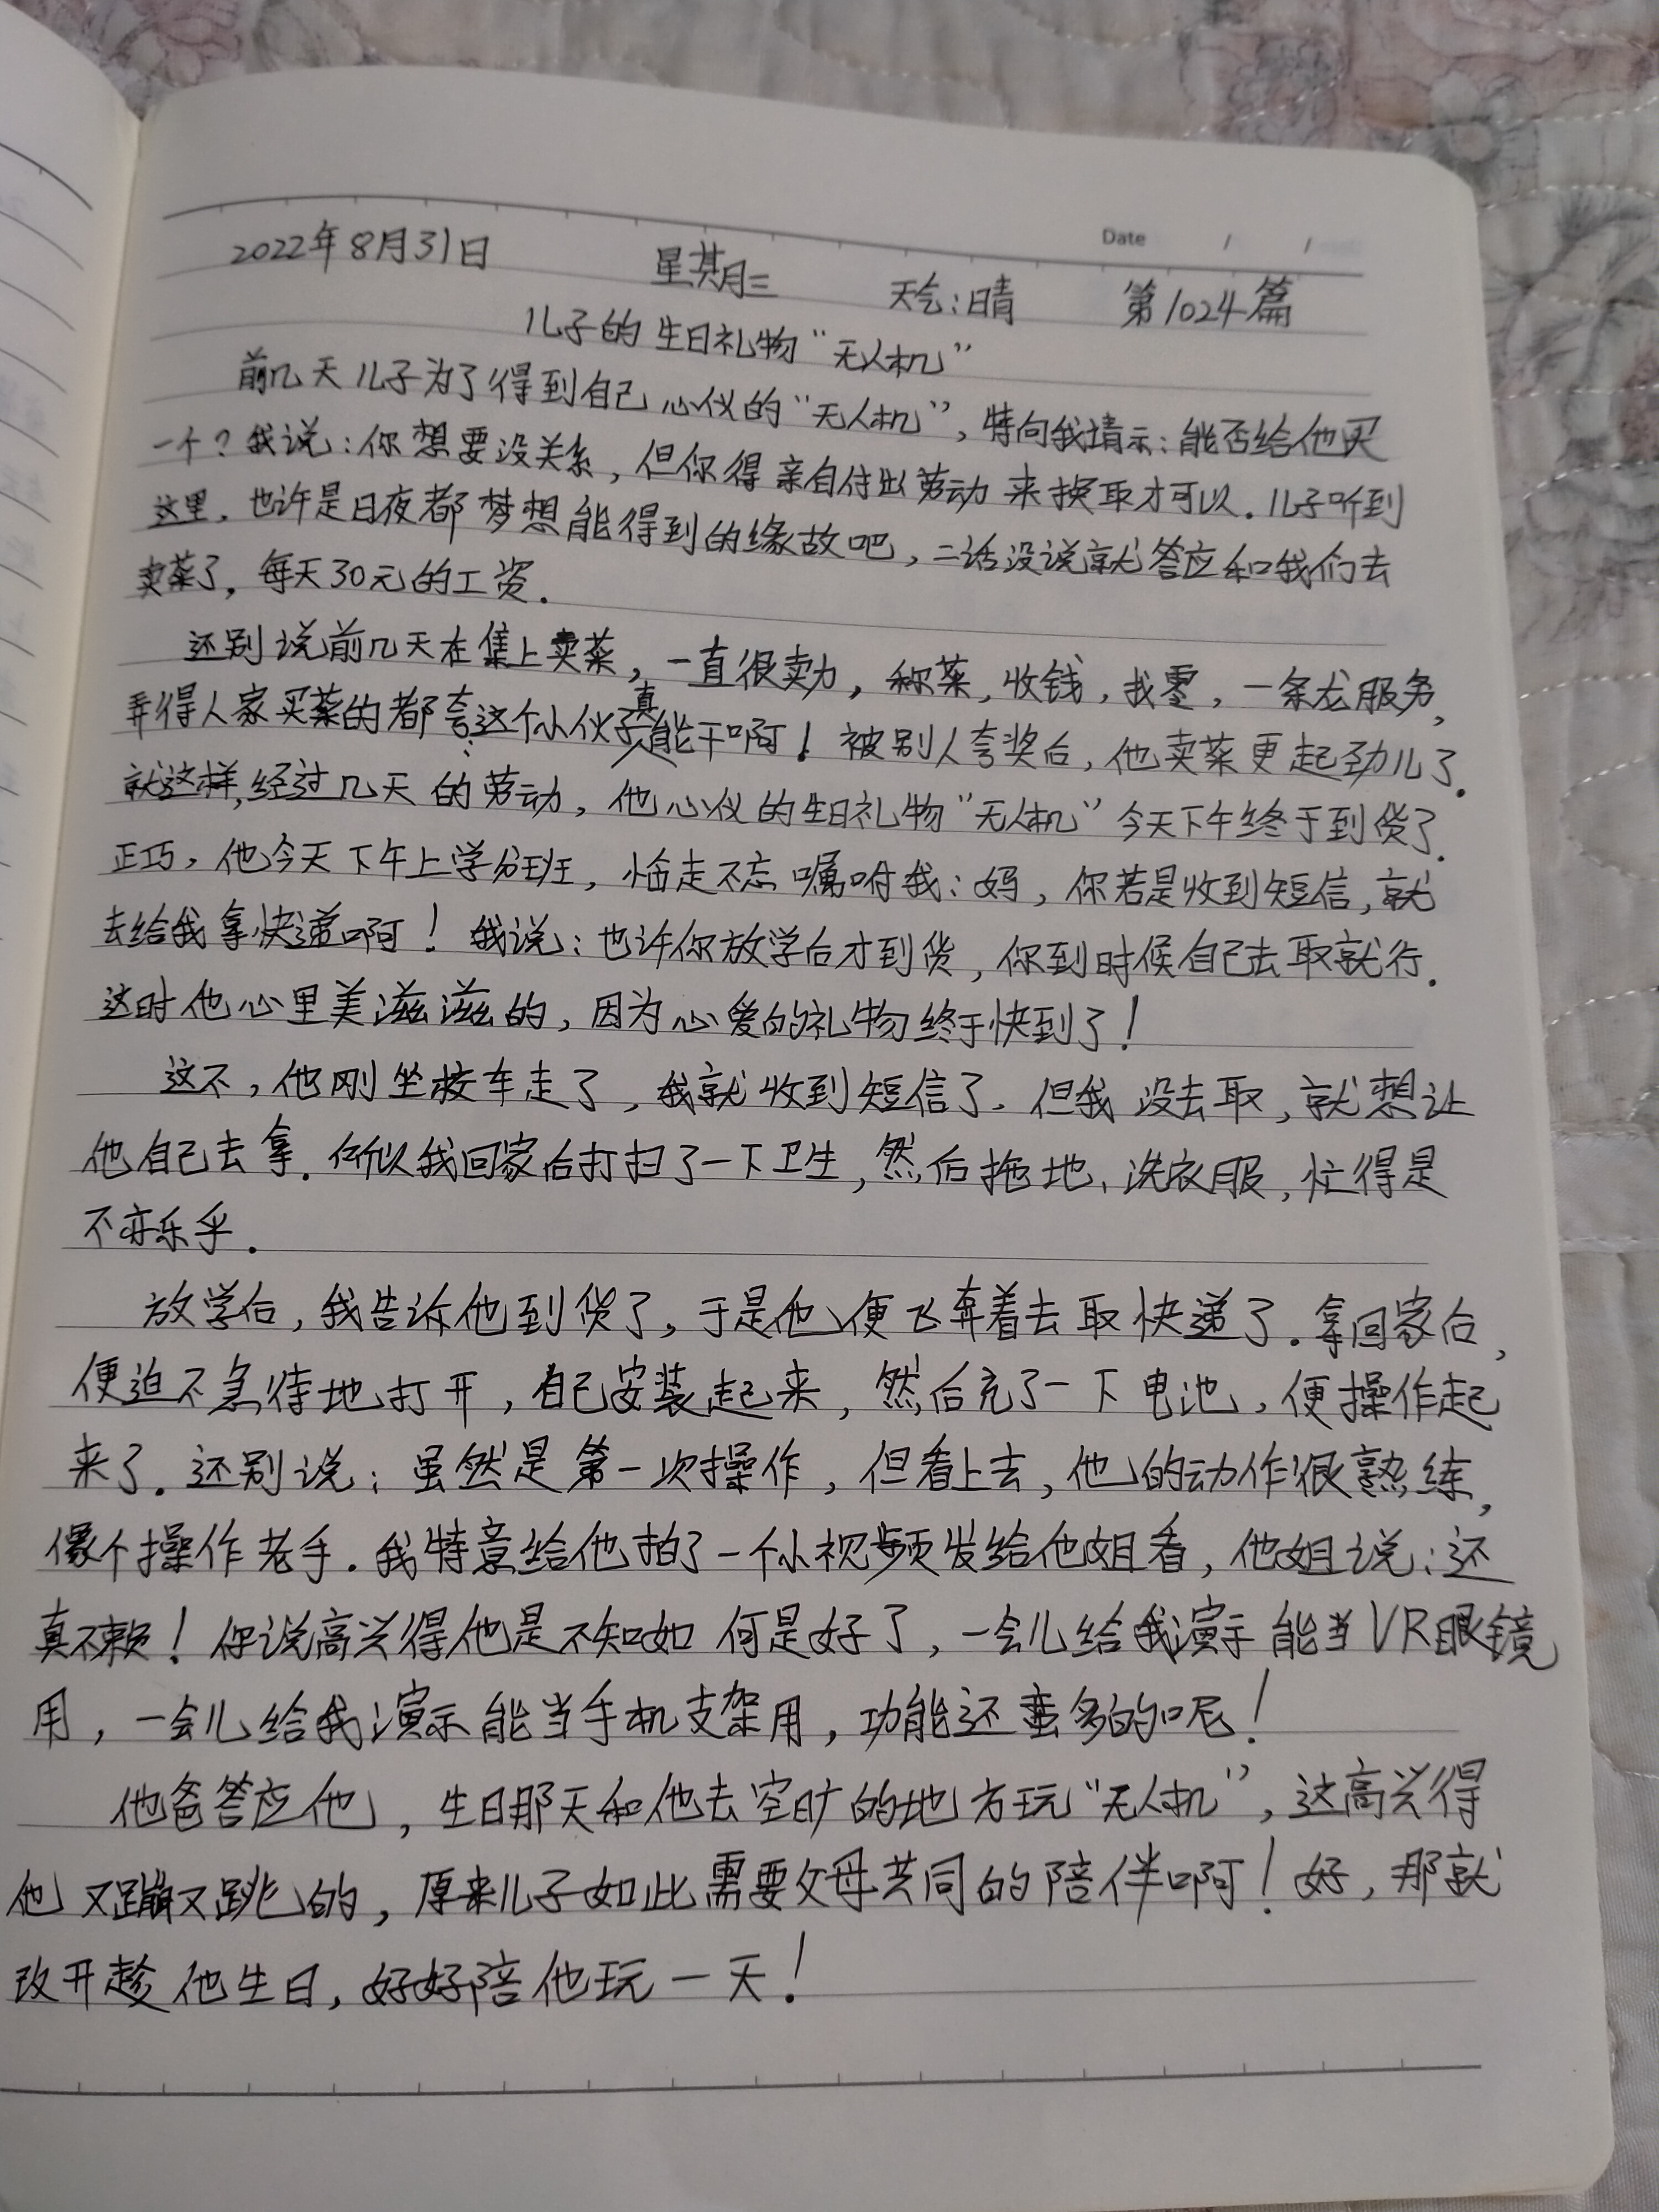 Date / /
2022年8月31日 星期三 天气:晴 第1024篇
儿子的生日礼物“无人机”
前几天儿子为了得到自己心仪的“无人机”,特向我请示:能否给他买
一个?我说:你想要没关系,但你得亲自付出劳动来换取才可以.儿子听到
这里,也许是日夜都梦想能得到的缘故吧,二话没说就答应和我们去
卖菜了,每天30元的工资.
还别说前几天在集上卖菜,一直很卖力,称菜,收钱,找零,一条龙服务,
弄得人家买菜的都夸这个小伙子真能干啊!被别人夸奖后,他卖菜更起劲儿了.
就这样,经过几天的劳动,他心仪的生日礼物“无人机”今天下午终于到货了.
正巧,他今天下午上学分班,临走不忘嘱咐我:妈,你若是收到短信,就
去给我拿快递啊!我说:也许你放学后才到货,你到时候自己去取就行.
这时他心里美滋滋的,因为心爱的礼物终于快到了!
这不,他刚坐校车走了,我就收到短信了.但我没去取,就想让
他自己去拿.所以我回家后打扫了一下卫生,然后拖地、洗衣服,忙得是
不亦乐乎.
放学后,我告诉他到货了,于是他便飞奔着去取快递了.拿回家后,
便迫不急待地打开,自己安装起来,然后充了一下电池,便操作起
来了.还别说:虽然是第一次操作,但看上去,他的动作很熟练,
像个操作老手.我特意给他拍了一个小视频发给他姐看,他姐说:还
真不赖!你说高兴得他是不知如何是好了,一会儿给我演示能当VR眼镜
用,一会儿给我演示能当手机支架用,功能还蛮多的呢!
他爸答应他,生日那天和他去空旷的地方玩“无人机”,这高兴得
他又蹦又跳的,原来儿子如此需要父母共同的陪伴啊!好,那就
改开趁他生日,好好陪他玩一天!